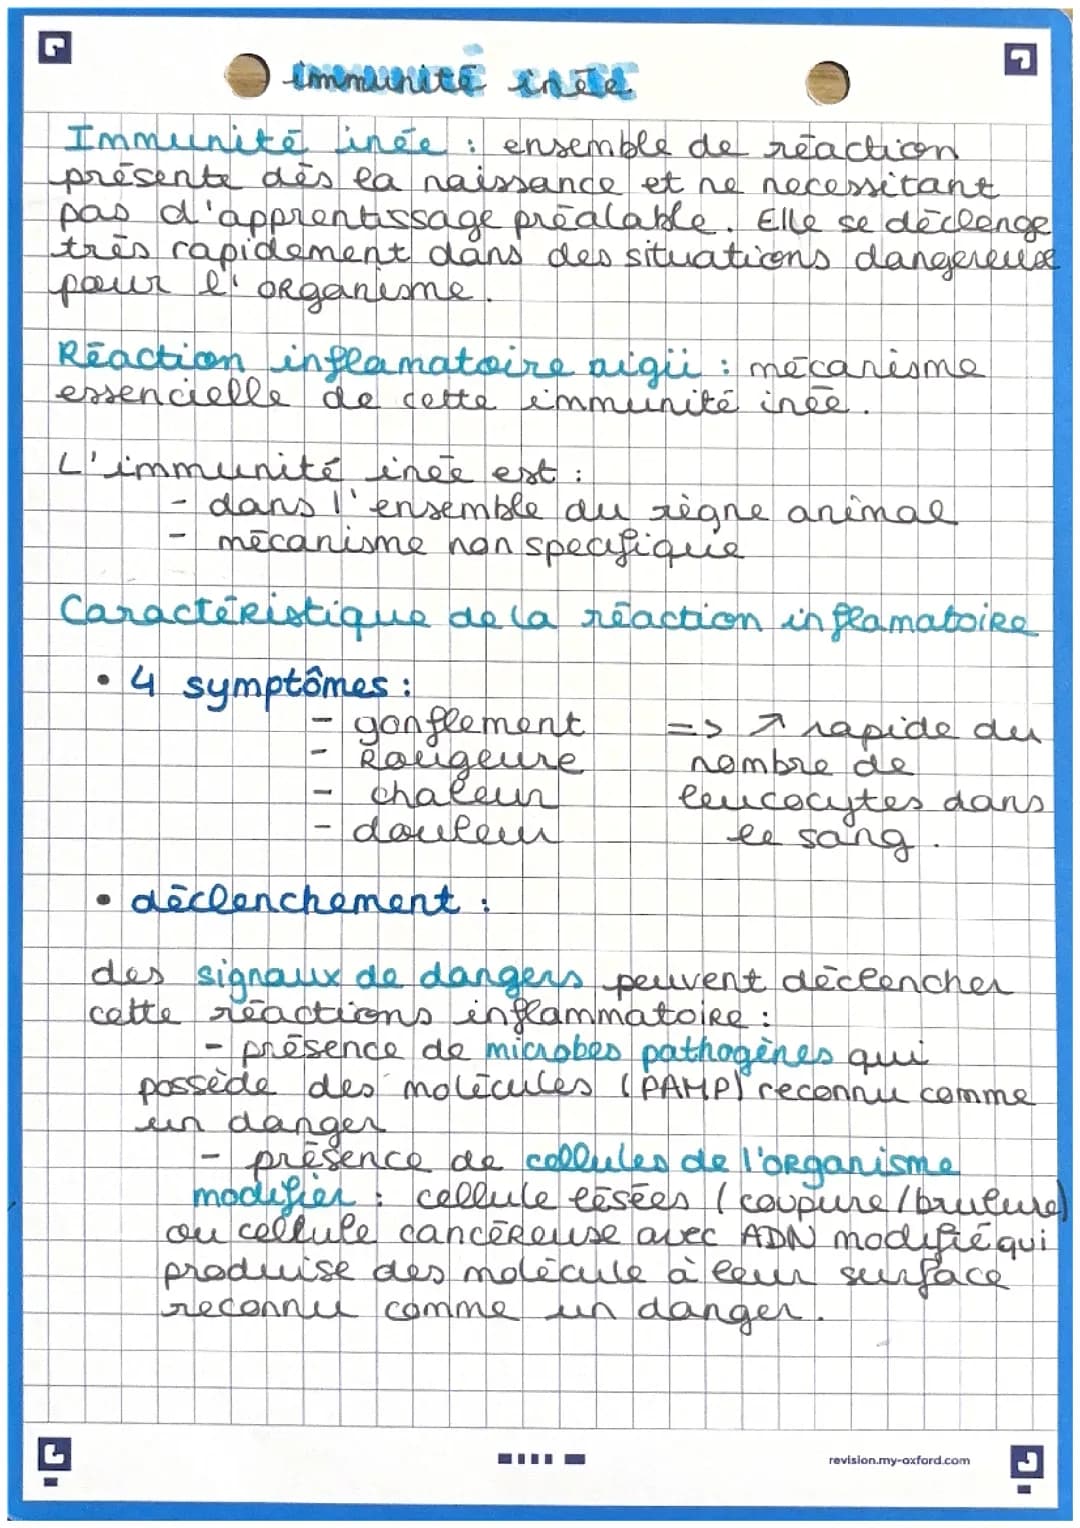 immunité inée
Immunité inée : ensemble de réaction
présente dès la naissance et ne necessitant
pas d'apprentissage préalable. Elle se déclenge
très rapidement dans des situations dangereuse
pour l'organisme.
Réaction inflamatoire aigüi : mécanisme
essencielle de cette immunité inée.
L'immunité inée est :
- dans l'ensemble du règne animal
- mécanisme non specifique
Caractéristique de la réaction inflamatoire
• 4 symptômes :
- gonflement => ↗ rapide du
- Rougeure nombre de
- chaleur leucocytes dans
- douleur le sang.
• déclenchement :
des signaux de dangers peuvent déclencher
cette réactions inflammatoire :
- présence de microbes pathogènes qui
possède des molécules (PAMP) reconnu comme
un danger
- présence de cellules de l'organisme
modifier : cellule lésées (coupure/brulure)
ou cellule cancéreuse avec ADN modifié qui
produise des molécule à leur surface
reconnu comme un danger.
revision.my-oxford.com